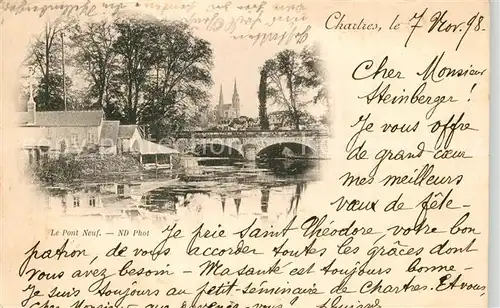 Chartres, le 7 Nov. 98.
Cher Monsieur
Steinberger!
Je vous offre
de grand cœur
mes meilleurs
vœux de fête-
Le Pont Neuf. — ND Phot
Je prie saint Théodore, votre bon
patron, de vous accorder toutes les grâces dont
vous avez besoin - Ma santé est toujours bonne-
Je suis toujours au petit-séminaire de Chartres. Et vous
cher Monsieur, que devenez-vous?